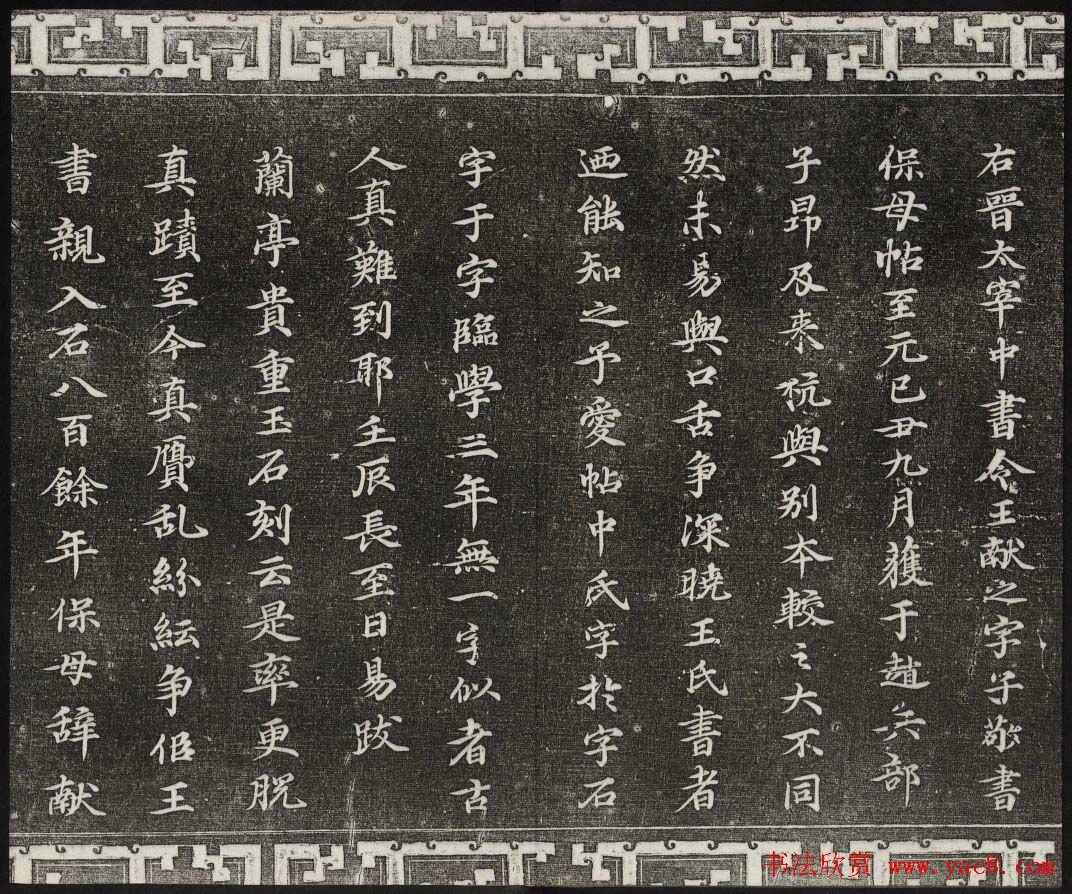 右晉太宰中書令王献之字子敬書
保母帖至元己丑九月獲于趙兵部
子昂及来杭與别本較之大不同
然未易與口舌争深曉王氏書者
迺能知之予愛帖中氏字於字石
字于字臨學三年無一字似者古
人真難到耶壬辰長至日易跋
蘭亭貴重玉石刻云是率更脱
真蹟至今真贗乱紛紜争佀王
書親入石八百餘年保母辞献
书法欣赏 www.yac8.com